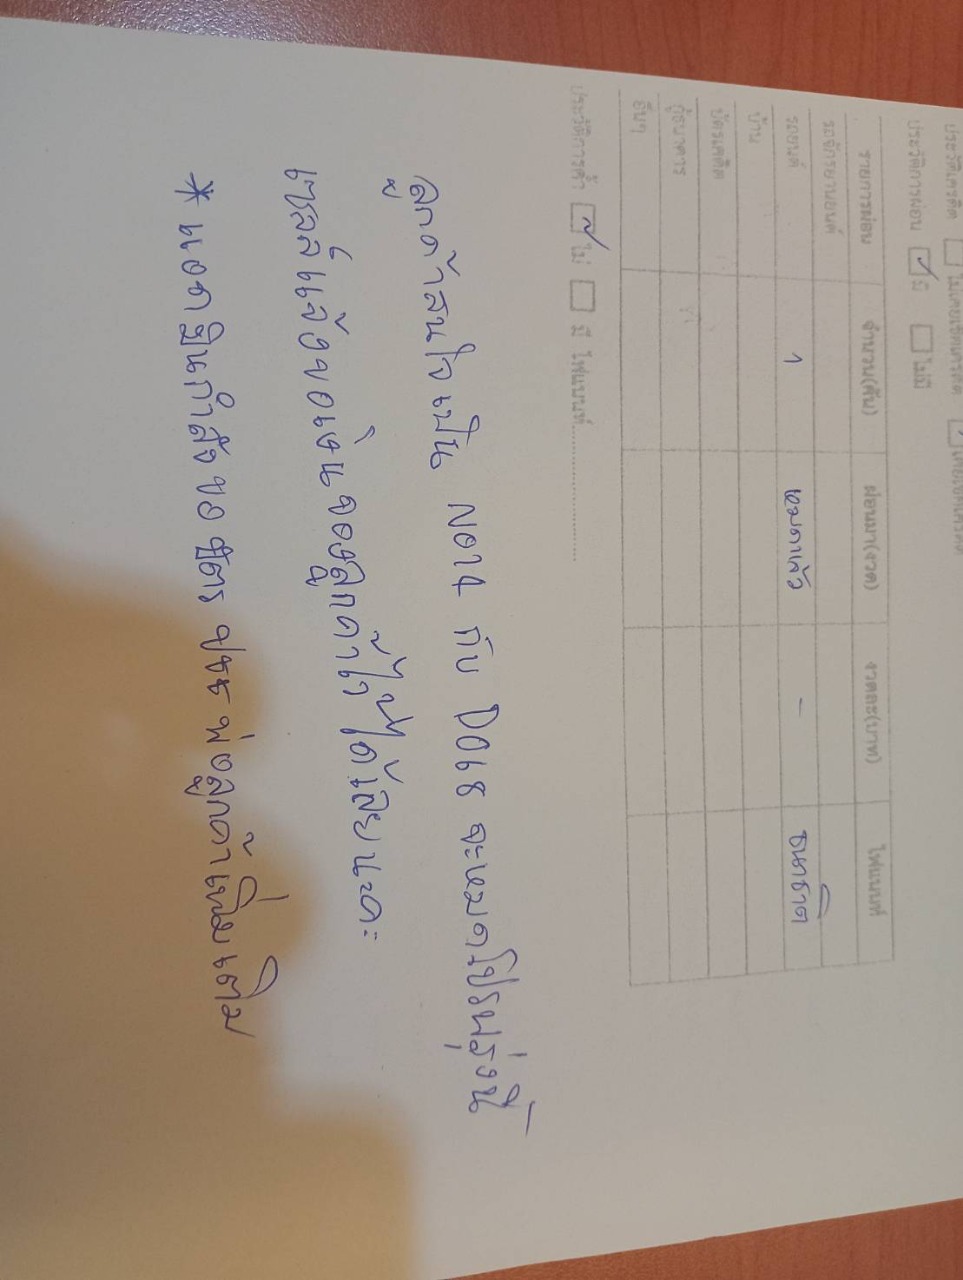 ประวัติเครดิต ☐ ไม่เคยเช็คเครดิต
ประวัติการผ่อน ☑ มี ☐ ไม่มี
รายการผ่อน จำนวน(คัน) ผ่อนมา(งวด) งวดละ(บาท) ไฟแนนซ์
รถจักรยานยนต์
รถยนต์ 1 หมดแล้ว - ธนชาต
บ้าน
บัตรเครดิต
กู้ธนาคาร
อื่นๆ
ประวัติการค้ำ ☑ ไม่ ☐ มี ไฟแนนซ์
ลูกค้าสนใจเป็น กับ จะหมดโปรพรุ่งนี้
เซลล์แจ้งขอเงินจองลูกค้าได้เลยนะคะ
* แอดมินกำลังขอ บัตร ปชช พ่อลูกค้าเพิ่มเติม